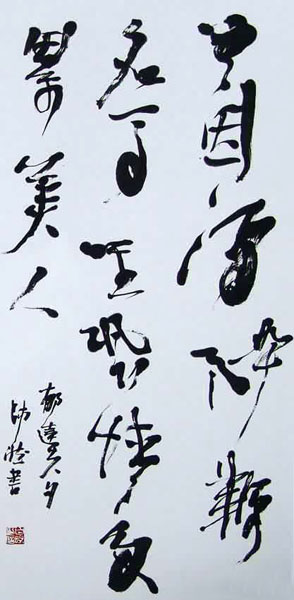 曾因酒醉鞭
名马生恐情多
累美人
郁達夫句
書